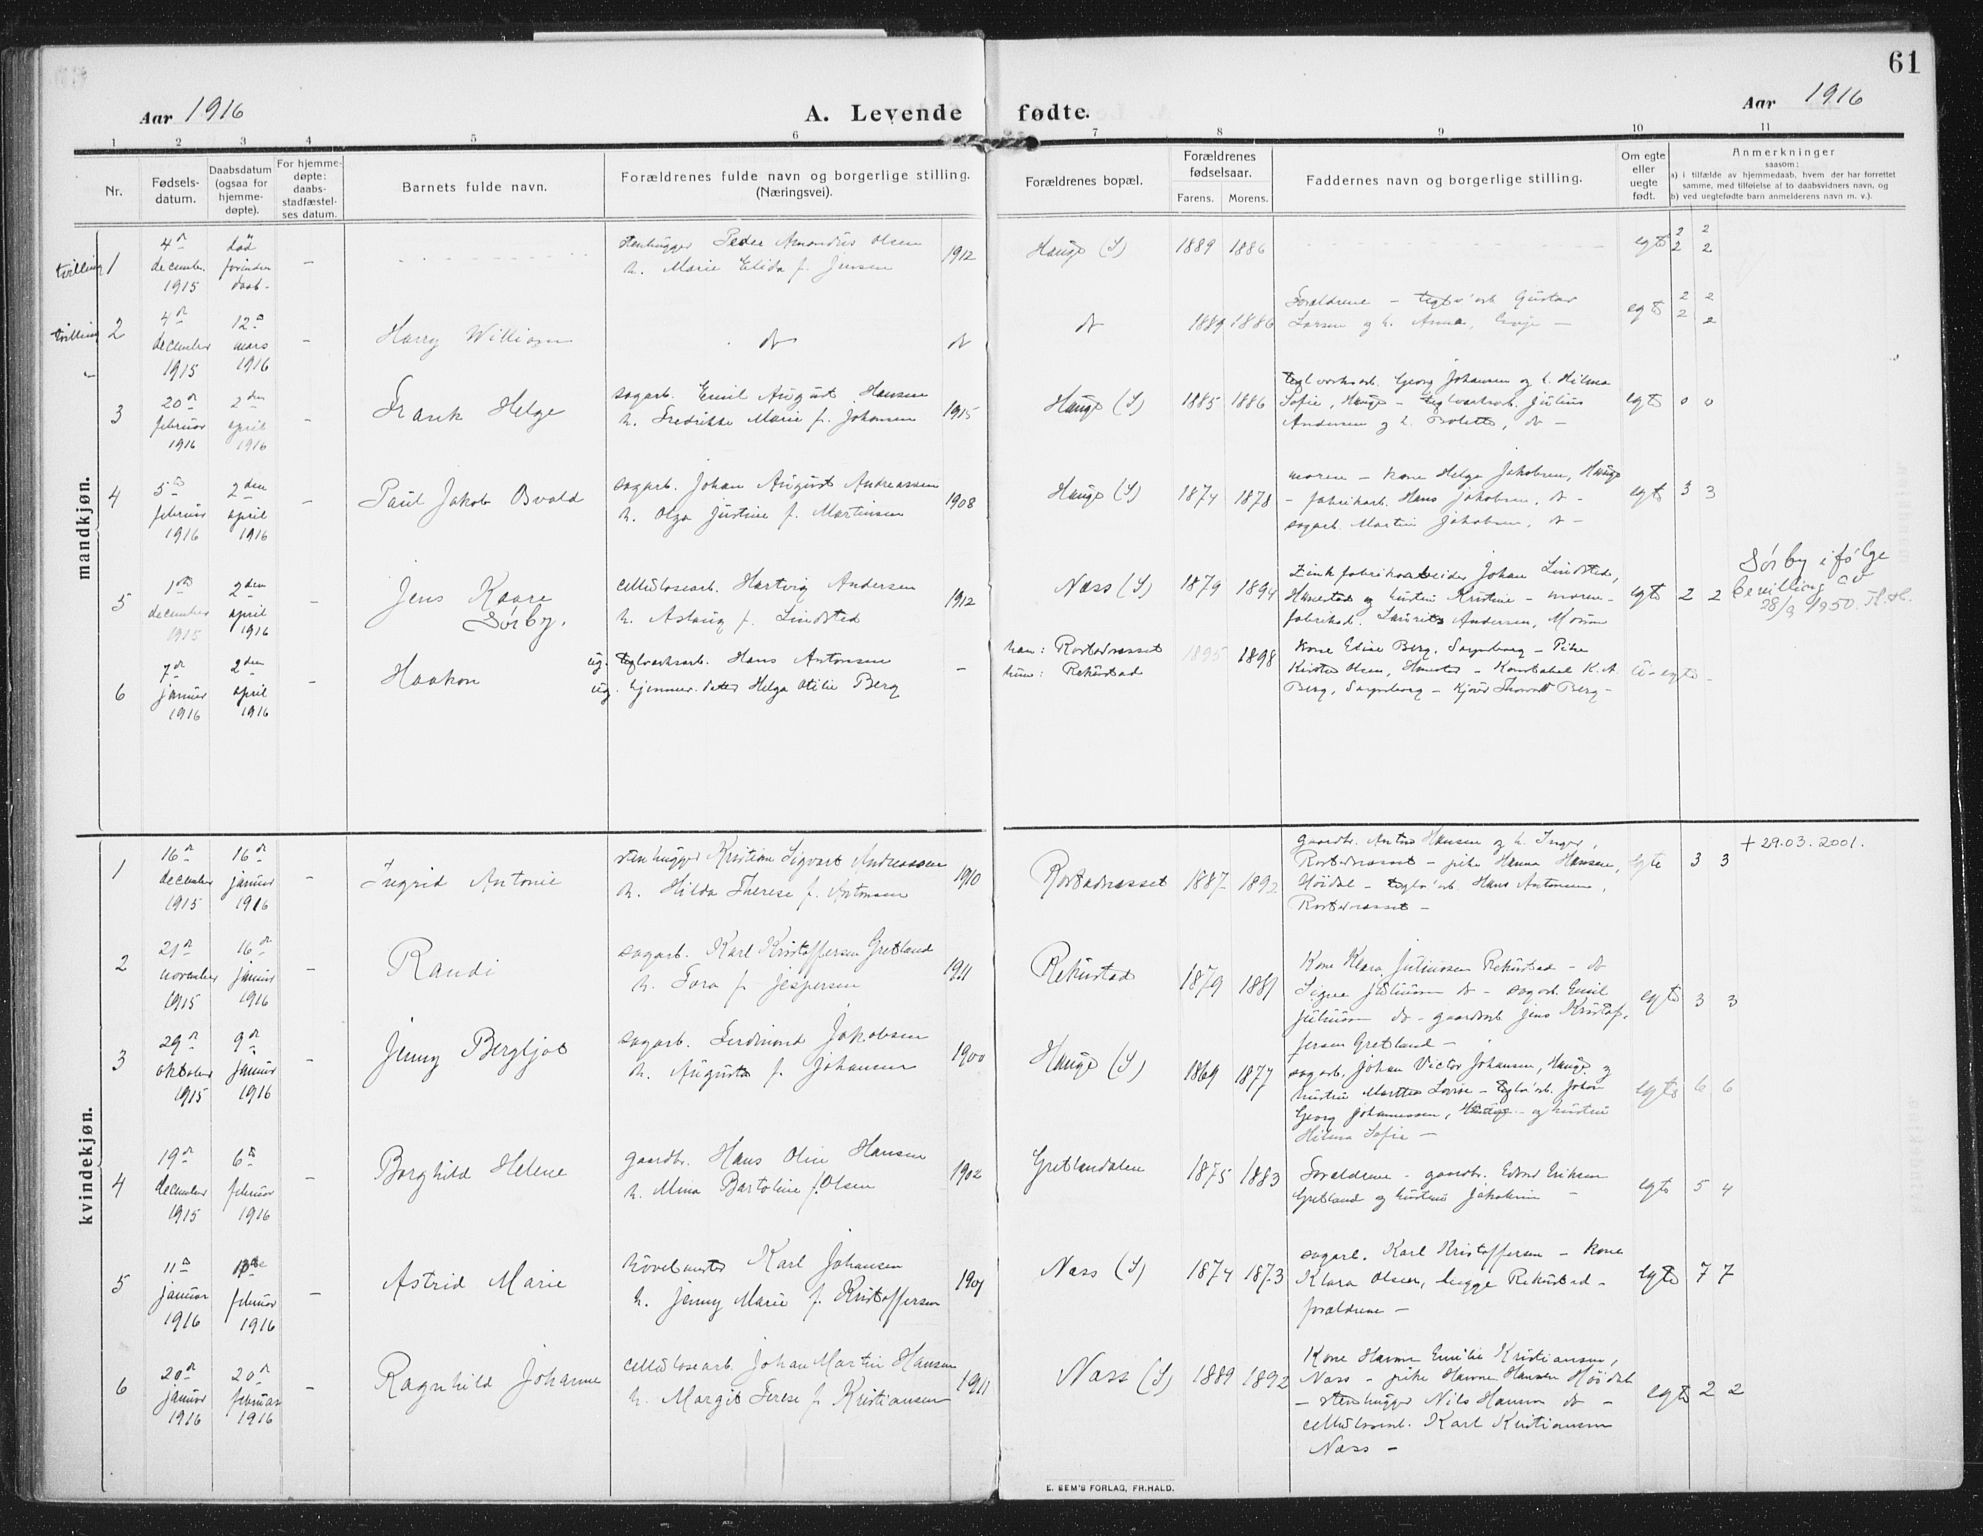 61
Aar 1916
A. Levende fødte.
Aar 1916
1 2 3 4 5 6 7 8 9 10 11
Nr.
Fødsels-
datum.
Daabsdatum
(ogsaa for
hjemme-
døpte).
For hjemme-
døpte:
daabs-
stadfæstel-
ses datum.
Barnets fulde navn.
Forældrenes fulde navn og borgerlige stilling.
(Næringsvei).
Forældrenes bopæl.
Forældrenes
fødselsaar.
Farens. Morens.
Faddernes navn og borgerlige stilling.
Om egte
eller
uegte
født.
Anmerkninger
saasom:
a) i tilfælde av hjemmedaab, hvem der har forrettet
samme, med tilføielse af to daabsvidners navn, og
b) ved uegtefødte barn anmelderens navn m. v.).
mandkjøn.
tvilling 1
4de decembr. 1915
død forinden daab
–
stenhugger Peder Amandus Olsen
h. Marie Elida f. Jensen
1912
Hauge (S)
1889 1886
egte 2 2
2 2
tvilling 2
4de december 1915
12te mars 1916
–
Harry William
do
do
do
1889 1886
Forældrene – teglv.arb. Gustav
Larsen og h. Anna,
egte 2 2
2 2
3
20de februar 1916
2den april 1916
–
Frank Helge
sagarb. Emil August Hansen
h. Fredrikke Marie f. Johansen
1915
Hauge (S)
1885 1886
teglverksarb. Georg Johansen og h. Hilma
Sofie, Hauge – teglverksarb. Julius
Andersen og h. Bolette, do –
egte 0 0
4
5te februar 1916
2den april 1916
–
Paul Jakob Osvald
sagarb. Johan August Andreassen
h. Olga Justine f. Martinsen
1908
Hauge (S)
1874 1878
moren – kone Helga Jakobsen, Hauge
– fabrikarb. Hans Jakobsen, do –
sagarb. Martin Jakobsen, do –
egte 3 3
5
1ste december 1915
2den april 1916
–
Jens Kaare
Sørby.
cellulosearb. Hartvig Andersen
h. Aslaug f. Lindsted
1912
Næss (S)
1879 1894
Zinkfabrikarbeider Johan Lindsted,
og hustru Kristine – moren –
fabrikarb. Laurits Andersen,
egte 2 2
Sørby ifølge
bevilling av
28/9 1950.
6
7de januar 1916
2den april 1916
–
Haakon
ug. teglverksarb. Hans Antonsen
ug. hjemmev. datter Helga Otilie Berg
–
han: Rostadnesset
hun: Rekustad
1895 1898
Kone Elise Berg, Sarpsborg – Pike
Kirsten Olsen, – Konstabel K. A.
Berg, Sarpsborg – Thorvald Berg –
u-egte –
kvindekjøn.
1
16de december 1915
16de januar 1916
–
Ingrid Antonie
stenhugger Kristian Sigvart Andreassen
h. Hilda Therese f. Antonsen
1910
Rostadnesset
1887 1892
gaardbr. Anton Hansen og h. Inger,
Rostadnesset – pike Hanna Hansen,
Höidal – teglv.arb. Hans Antonsen,
Rostadnesset –
egte 3 3
+ 29.03.2001.
2
21de november 1915
16de januar 1916
–
Randi
sagarb. Karl Kristoffersen Gretland
h. Tora f. Jespersen
1911
Rekustad
1879 1889
Kone Klara Juliussen Rekustad – do
Signe Juliussen do – sagarb. Emil
Juliussen do – gaardarb. Jens Kristof-
fersen Gretland –
egte 3 3
3
29de oktober 1915
9de januar 1916
–
Jenny Bergljot
sagarb. Ferdinand Jakobsen
h. Augusta f. Johansen
1900
Hauge (S)
1869 1877
sagarb. Johan Victor Johansen, Hauge og
hustru Marthe Lovise – teglv.arb. Johan
Georg Johannessen, Hauge – og hustru
Hilma Sofie –
egte 6 6
4
19de december 1915
6te februar 1916
–
Borghild Helene
gaardbr. Hans Olin Hansen
h. Mina Bartoline f. Olsen
1902
Gretlandalen
1875 1883
Forældrene – gaardbr. Edvard Eriksen
Gretland og hustru Jakobine –
egte 5 4
5
11te januar 1916
februar 1916
–
Astrid Marie
hövelmester Karl Johansen
h. Jenny Marie f. Kristoffersen
1901
Næss (S)
1874 1873
sagarb. Karl Kristoffersen – kone
Klara Olsen, begge Rekustad –
forældrene –
egte 7 7
6
20de januar 1916
20de februar 1916
–
Ragnhild Johanne
cellulosearb. Johan Martin Hansen
h. Margit Terese f. Kristiansen
1911
Næss (S)
1889 1892
Kone Hanna Emilie Kristiansen,
Næss – pike Hanna Hansen Höidal
– stenhugger Nils Hansen do –
cellulosearb. Karl Kristiansen
Næss –
egte 2 2
E. SEM'S FORLAG, FR.HALD.